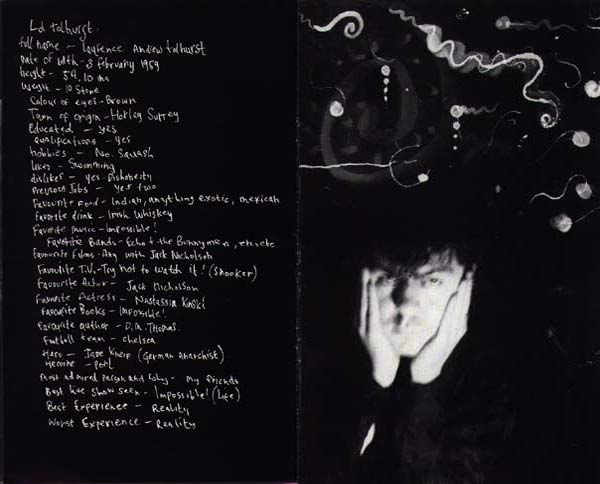 Lol tolhurst.
full name — Laurence Andrew tolhurst
Date of birth - 3 february 1959
height - 5ft. 10 ins
Weight - 10 Stone
Colour of eyes - Brown
Town of origin - Horley Surrey
Educated — yes
qualifications - yes
hobbies — No. Squash
likes — Swimming
dislikes — yes. Dishonesty
Previous Jobs — yes two
Favourite food - Indian, anything exotic, mexican
Favorite drink - Irish Whiskey
Favorite music - impossible!
Favorite Bands - Echo & the Bunnymen, etc etc
Favourite films - Any with Jack Nicholson
Favourite T.V. - Try not to watch it! (Snooker)
Favourite Actor - Jack Nicholson
Favourite Actress - Nastassia Kinski
Favourite Books - Impossible!
Favourite author - D.M. Thomas.
Football team - Chelsea
Hero - (German Anarchist)
Heroine -
Most admired person and why - my friends
Best live show seen - Impossible! (Life)
Best Experience - Reality
Worst Experience - Reality